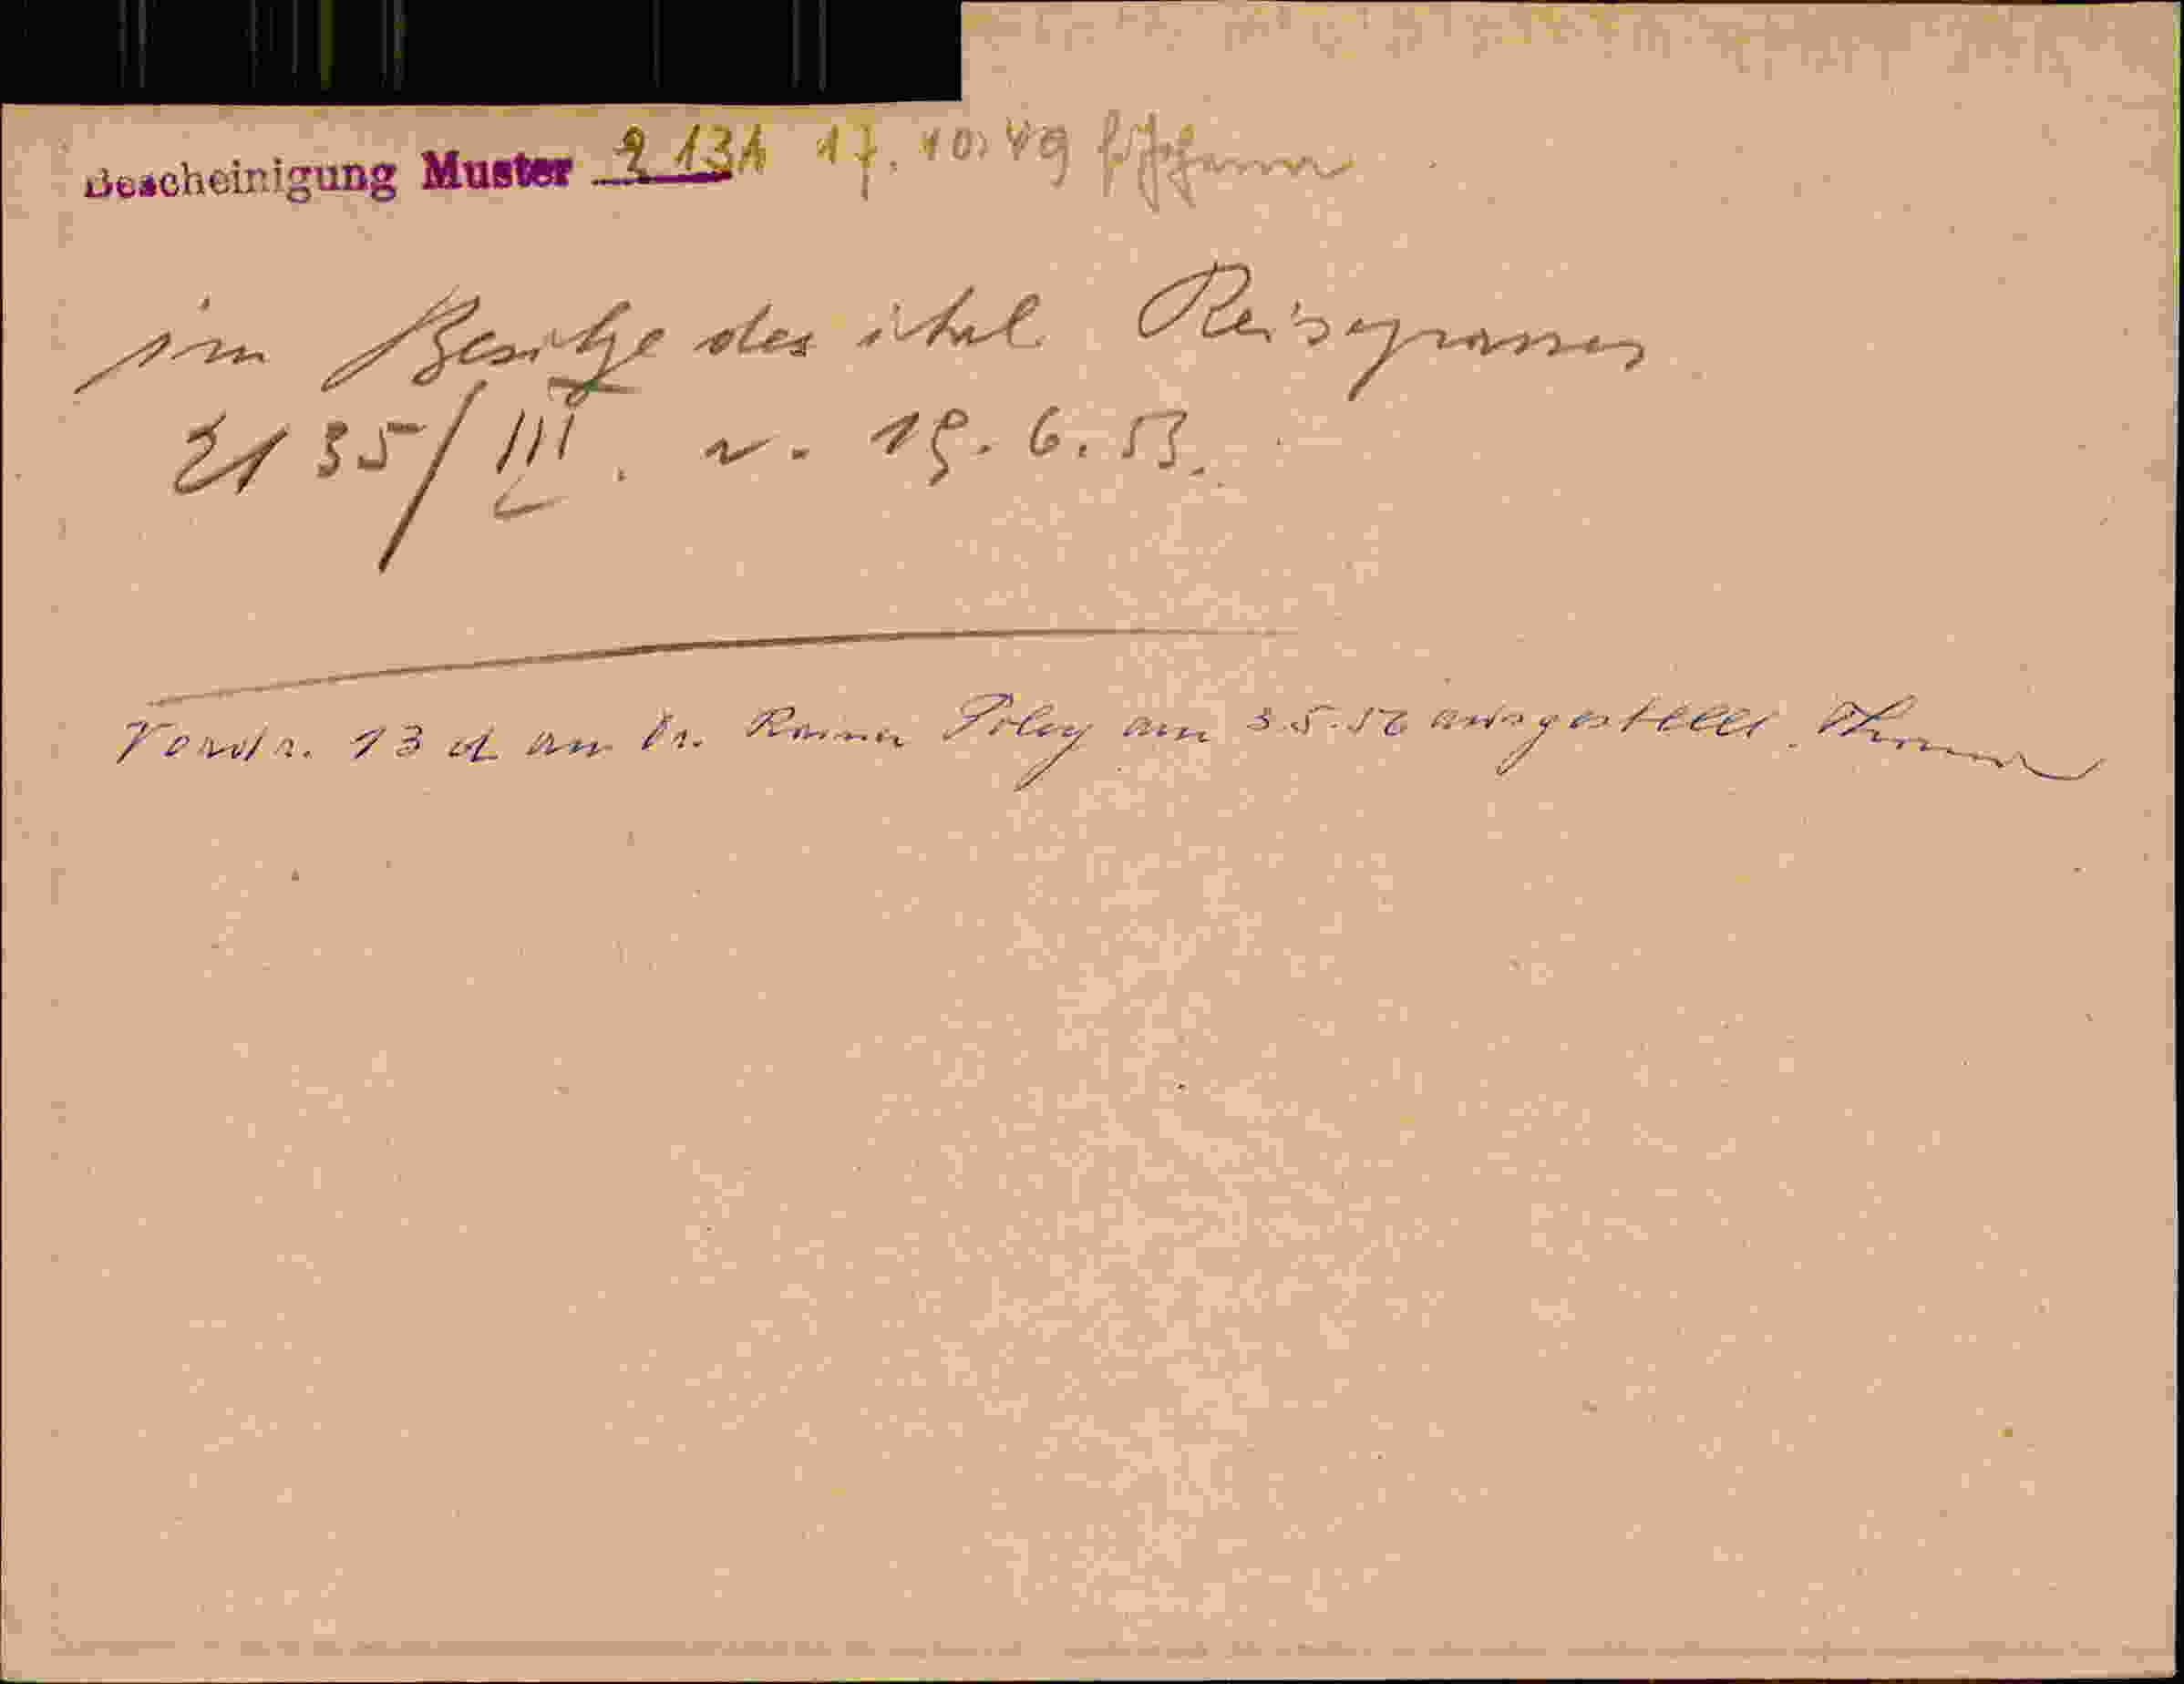 Bescheinigung Muster 2 13A 17.10.49
im Besitze des ital. Reisepasses
2135/III. v. 19.6.53.
Vordr. 13 d an Dr. Rainer Poley am 3.5.56 ausgestellt.